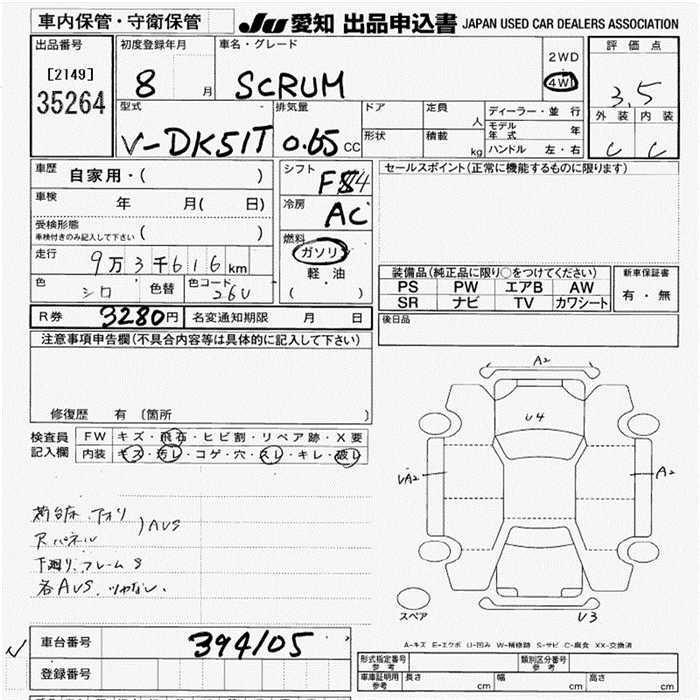 車内保管・守衛保管
JU 愛知 出品申込書 JAPAN USED CAR DEALERS ASSOCIATION
出品番号
[2149]
35264
初度登録年月
8 月
車名・グレード
SCRUM
2WD
4WD
評価点
3.5
外装 内装
C C
型式
V-DK51T
排気量
0.65 CC
ドア
形状
定員 人
積載 kg
ディーラー・並行
モデル年式 年
ハンドル 左・右
車歴 自家用・( )
車検 年 月( 日)
受検形態
車検付きのみ記入して下さい ( )
走行 9万3千616km
色 シロ 色替 色コード 26U
シフト
F 4
冷房
AC
燃料
ガソリン
軽油
( )
セールスポイント(正常に機能するものに限ります)
装備品(純正品に限り○をつけてください)
PS PW エアB AW
SR ナビ TV カワシート
新車保証書
有・無
後日品
R券 3280円 名変通知期限 月 日
注意事項申告欄(不具合内容等は具体的に記入して下さい)
修復歴 有 〔箇所 〕
検査員記入欄
FW キズ・飛石・ヒビ割・リペア跡・X要
内装 キズ・汚レ・コゲ・穴・スレ・キレ・破レ
荷台床、アオリ
Rパネル )AUS
下廻り、フレームS
各AUS、
A2
U4
UA2
A2
スペア
U3
A-キズ E-エクボ U-凹み W-補修跡 S-サビ C-腐食 XX-交換済
車台番号 394105
登録番号
形式指定番号 参考
類別区分番号 参考
車庫証明用 参考 長さ cm 幅 cm 高さ cm